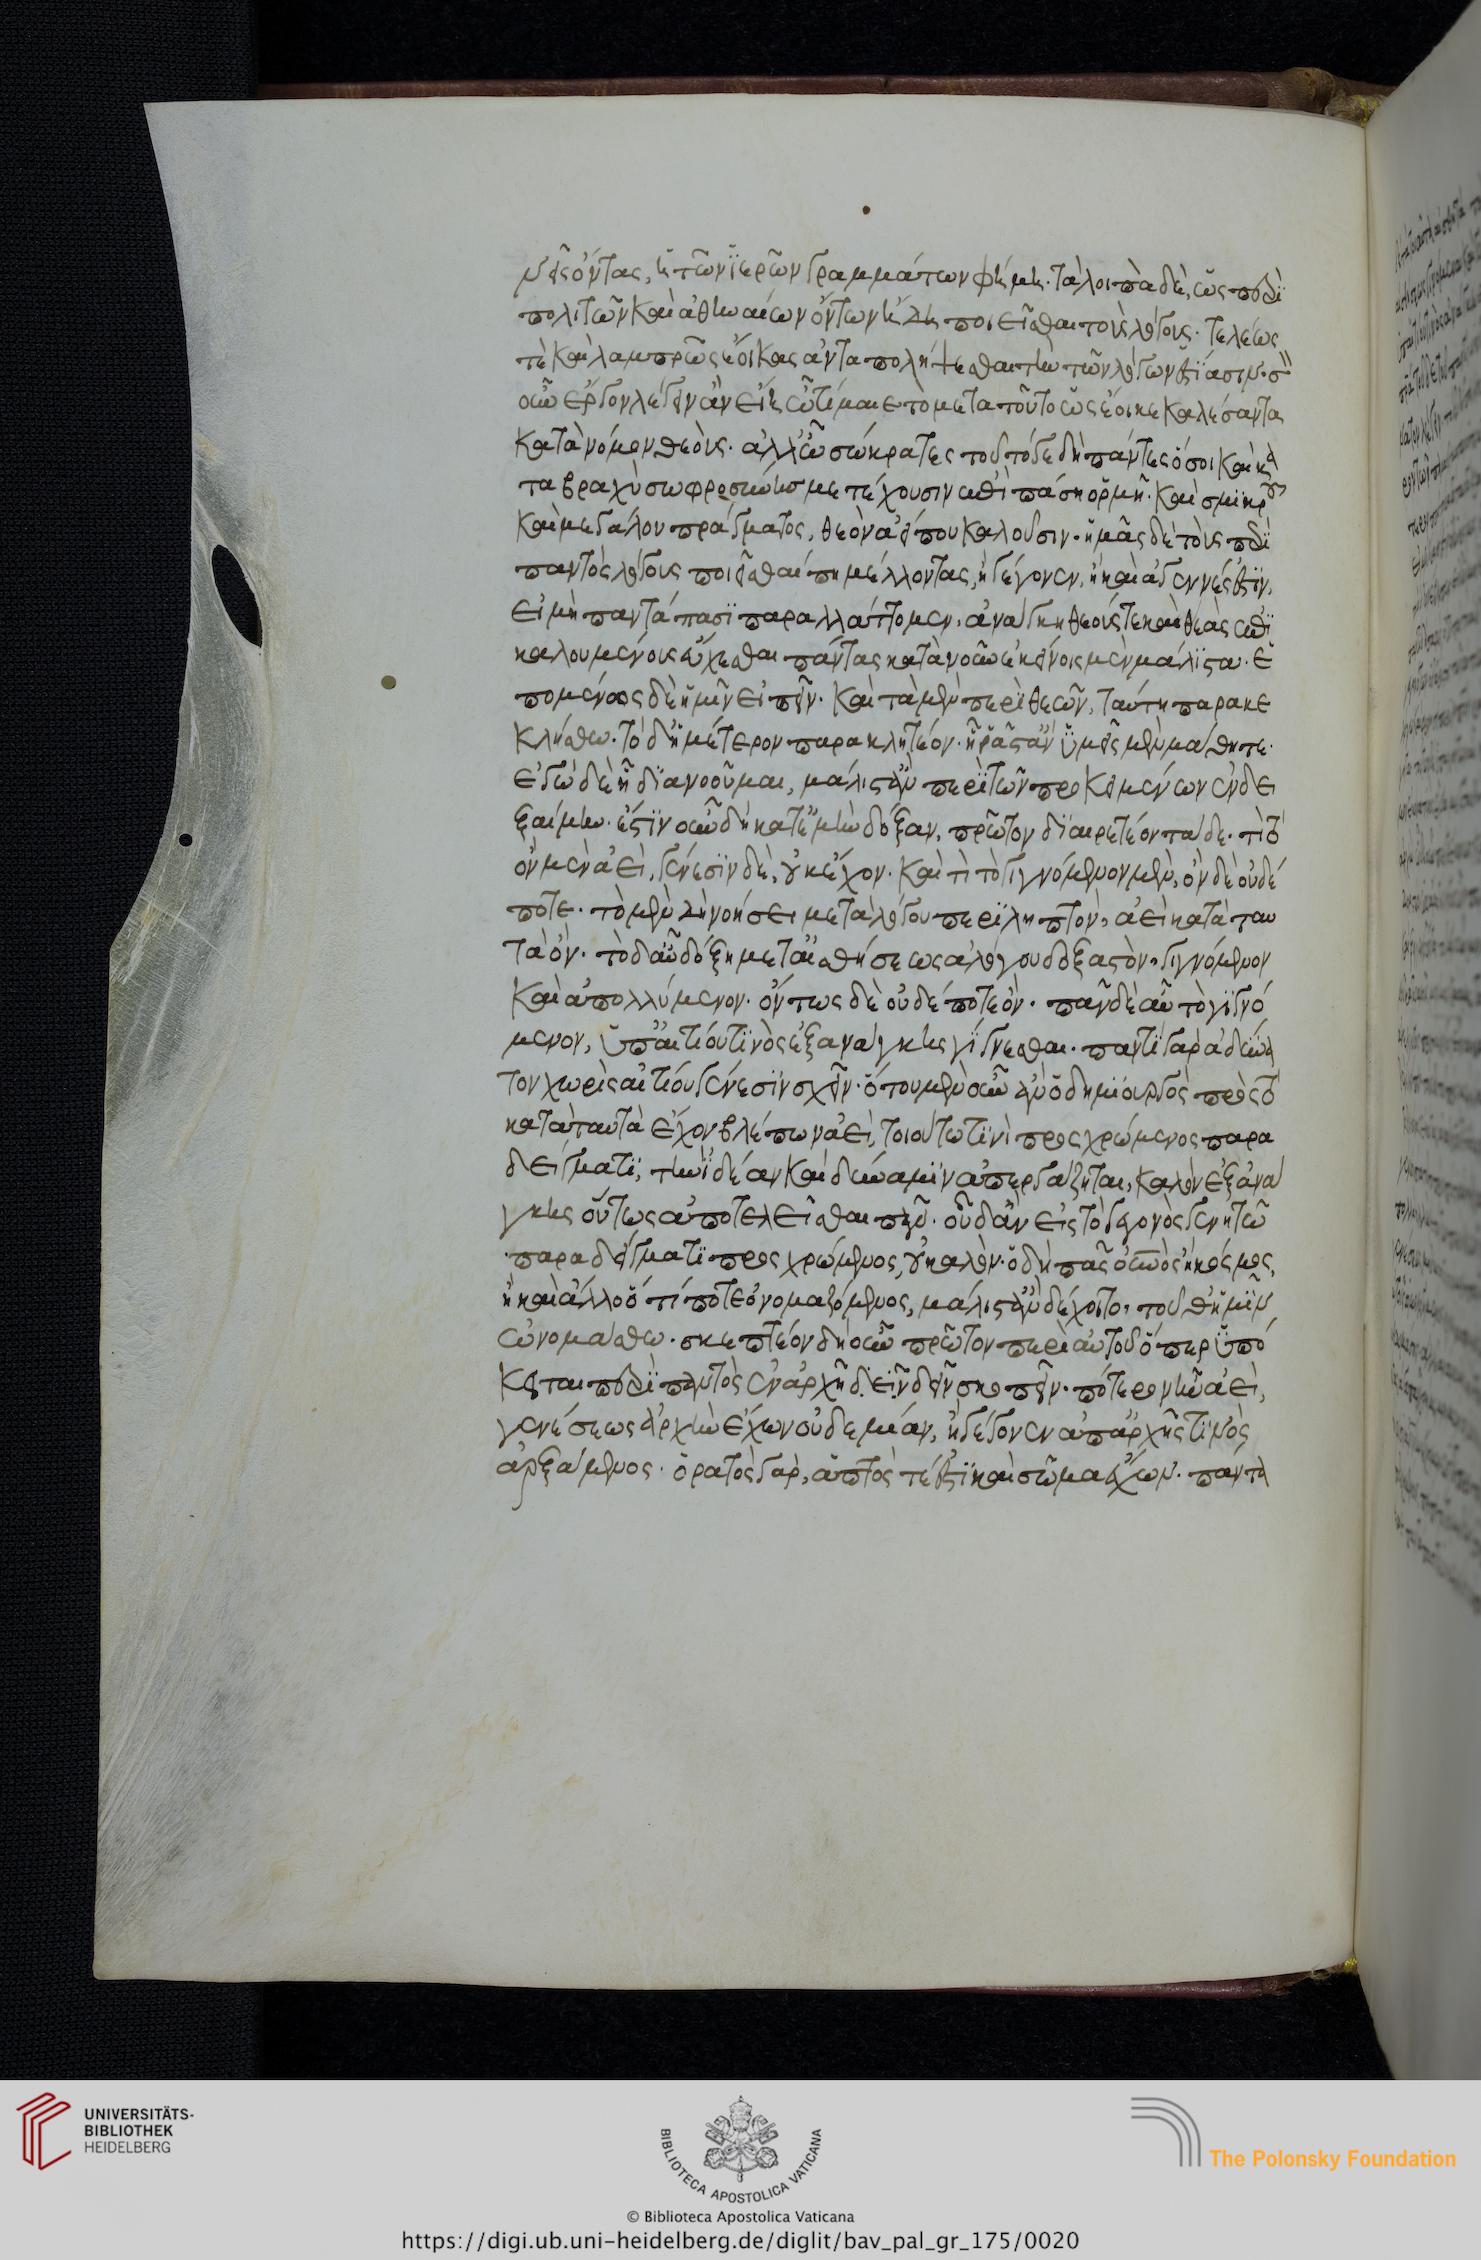 νεῖς ὄντας, ἡ τῶν ἱερῶν γραμμάτων φήμη. τὰ λοιπὰ δὲ, ὡς περὶ
πολιτῶν καὶ ἀθηναίων ὄντων ἤδη ποιεῖσθαι τοὺς λόγους. τελέως
τὲ καὶ λαμπρῶς ἔοικας ἀνταπολήψεσθαι τὴν τῶν λόγων ἑστίασιν. σὸν
οὖν ἔργον λέγειν ἂν εἴη ὦ τίμαιε τὸ μετὰ τοῦτο ὡς ἔοικε καλέσαντα
κατὰ νόμον θεούς. ἀλλ' ὦ σώκρατες τοῦτό γε δὴ πάντες ὅσοι καὶ κα
τὰ βραχὺ σωφροσύνης μετέχουσιν ἐπὶ πάσῃ ὁρμῇ. καὶ σμικροῦ
καὶ μεγάλου πράγματος, θεὸν ἀεί που καλοῦσιν. ἡμᾶς δὲ τοὺς περὶ
παντὸς λόγους ποιεῖσθαί πη μέλλοντας, ἢ γέγονεν, ἢ καὶ ἀγεννές ἐστιν,
εἰ μὴ παντάπασι παραλλάττομεν, ἀνάγκη θεούς τε καὶ θεὰς ἐπι
καλουμένους εὔχεσθαι πάντας κατὰ νοῦν ἐκείνοις μὲν μάλιστα. ἑ
πομένως δὲ ἡμῖν εἰπεῖν. καὶ τὰ μὲν περὶ θεῶν, ταύτη παρακε
κλήσθω. τὸ δ' ἡμέτερον παρακλητέον. ᾗ ῥᾷστ' ἂν ὑμεῖς μὲν μάθητε.
ἐγὼ δὲ ᾗ διανοοῦμαι, μάλιστ' ἂν περὶ τῶν προκειμένων ἐνδει
ξαίμην. ἔστιν οὖν δὴ κατ' ἐμὴν δόξαν, πρῶτον διαιρετέον τάδε. τί τὸ
ὂν μὲν ἀεὶ, γένεσιν δὲ, οὐκ ἔχον. καὶ τί τὸ γιγνόμενον μὲν, ὂν δὲ οὐδέ
ποτε. τὸ μὲν δὴ νοήσει μετὰ λόγου περιληπτὸν, ἀεὶ κατὰ ταυ
τὰ ὄν. τὸ δ' αὖ δόξῃ μετ' αἰσθήσεως ἀλόγου δοξαστὸν, γιγνόμενον
καὶ ἀπολλύμενον. ὄντως δὲ οὐδέποτε ὄν. πᾶν δὲ αὖ τὸ γιγνό
μενον, ὑπ' αἰτίου τινὸς ἐξ ἀνάγκης γίγνεσθαι. παντὶ γὰρ ἀδύνα
τον χωρὶς αἰτίου γένεσιν σχεῖν. ὅτου μὲν οὖν ἂν ὁ δημιουργὸς πρὸς τὸ
κατὰ ταυτὰ ἔχον βλέπων ἀεὶ, τοιούτω τινὶ προσχρώμενος παρα
δείγματι, τὴν ἰδέαν καὶ δύναμιν ἀπεργάζηται, καλὸν ἐξ ἀνά
γκης οὕτως ἀποτελεῖσθαι πᾶν. οὗ δ' ἂν εἰς τὸ γεγονὸς γενητῶ
παραδείγματι προσχρώμενος, οὐ καλόν. ὁ δὴ πᾶς οὐρανὸς ἢ κόσμος,
ἢ καὶ ἄλλο ὅ τί ποτε ὀνομαζόμενος, μάλιστ' ἂν δέχοιτο, τοῦθ' ἡμῖν
ὠνομάσθω. σκεπτέον δὴ οὖν πρῶτον περὶ αὐτοῦ ὅπερ ὑπό
κειται περὶ παντὸς ἐν ἀρχῇ διεῖν δεῖν σκοπεῖν. πότερον ἦν ἀεὶ,
γενέσεως ἀρχὴν ἔχων οὐδεμίαν, ἢ γέγονεν ἀπ' ἀρχῆς τινὸς
ἀρξάμενος. ὁρατὸς γὰρ, ἁπτός τέ ἐστι καὶ σῶμα ἔχων. παντὰ
UNIVERSITÄTS-
BIBLIOTHEK
HEIDELBERG
BIBLIOTECA APOSTOLICA VATICANA
The Polonsky Foundation
© Biblioteca Apostolica Vaticana
https://digi.ub.uni-heidelberg.de/diglit/bav_pal_gr_175/0020